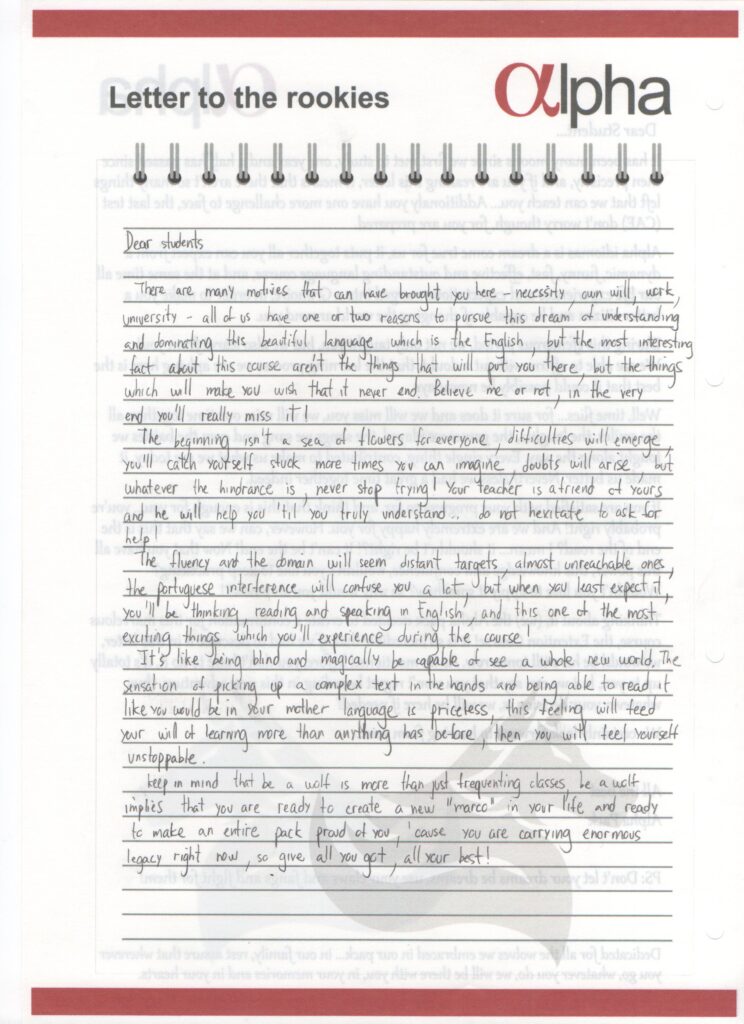 Letter to the rookies
αlpha
Dear students
There are many motives that can have brought you here – necessity, own will, work,
university – all of us have one or two reasons to pursue this dream of understanding
and dominating this beautiful language which is the English, but the most interesting
fact about this course aren't the things that will put you there, but the things
which will make you wish that it never end. Believe me or not, in the very
end you'll really miss it!
The beginning isn't a sea of flowers for everyone, difficulties will emerge,
you'll catch yourself stuck more times you can imagine, doubts will arise, but
whatever the hindrance is, never stop trying! Your teacher is a friend of yours
and he will help you 'til you truly understand.. do not hexitate to ask for
help!
The fluency and the domain will seem distant targets, almost unreachable ones,
the portuguese interference will confuse you a lot, but when you least expect it,
you'll be thinking, reading and speaking in English, and this one of the most
exciting things which you'll experience during the course!
It's like being blind and magically be capable of see a whole new world. The
sensation of picking up a complex text in the hands and being able to read it
like you would be in your mother language is priceless, this feeling will feed
your will of learning more than anything has before, then you will feel yourself
unstoppable.
keep in mind that be a wolf is more than just frequenting classes, be a wolf
implies that you are ready to create a new "marco" in your life and ready
to make an entire pack proud of you, 'cause you are carrying enormous
legacy right now, so give all you got, all your best!